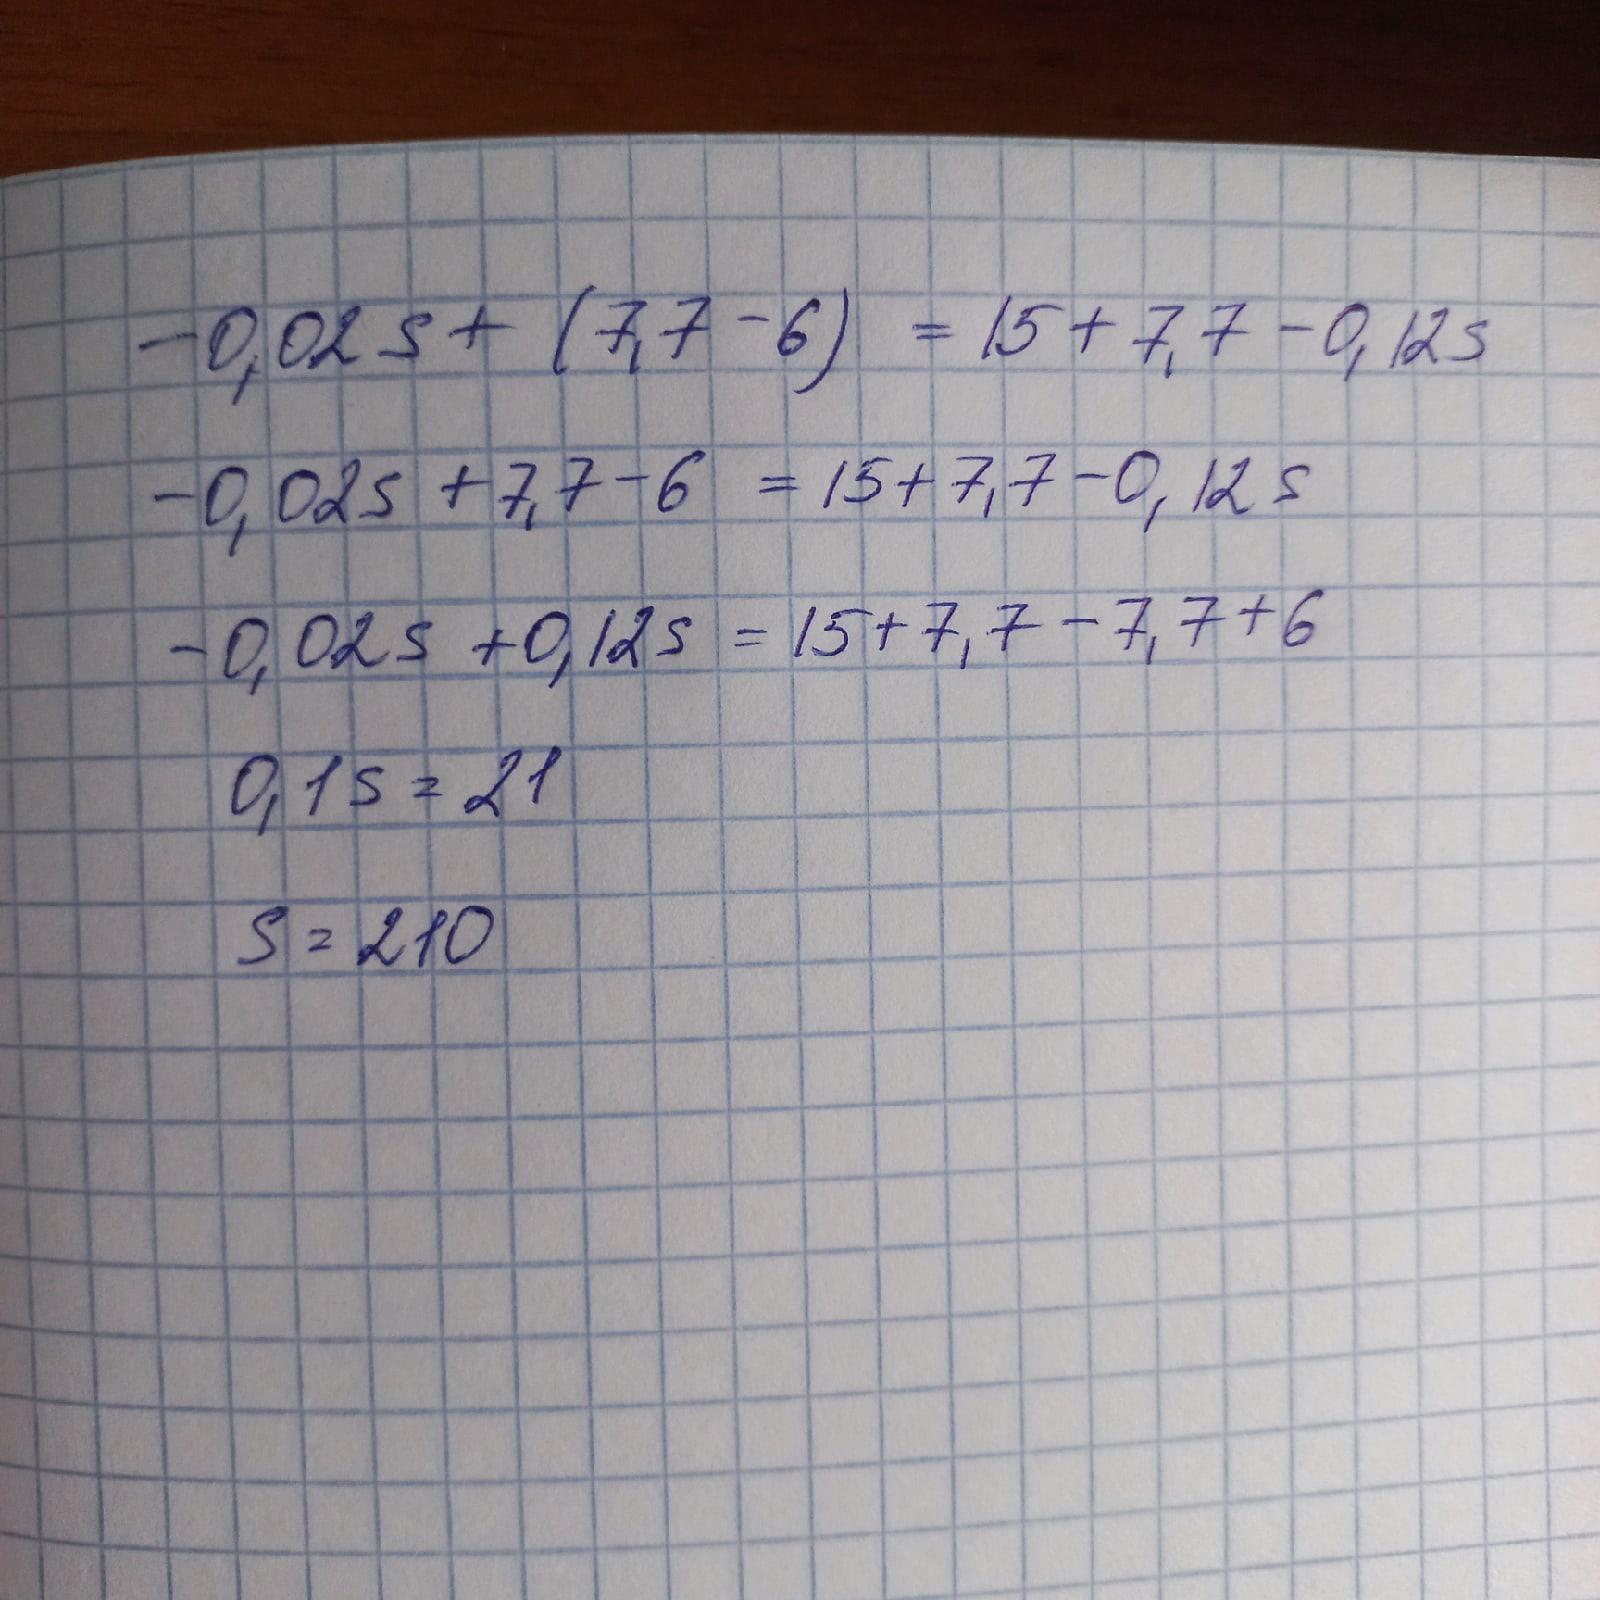 -0,02s + (7,7 - 6) = 15 + 7,7 - 0,12s
-0,02s + 7,7 - 6 = 15 + 7,7 - 0,12s
-0,02s + 0,12s = 15 + 7,7 - 7,7 + 6
0,1s = 21
s = 210